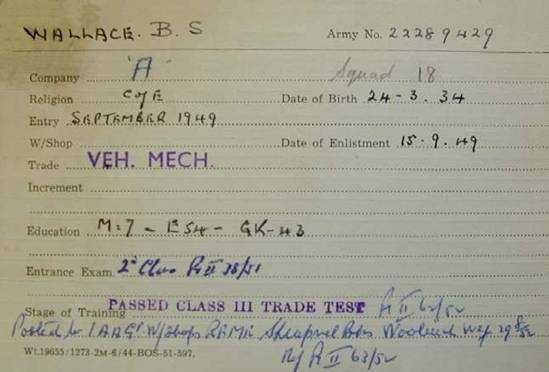 WALLACE. B. S Army No. 22289429
Company 'A' Squad 18
Religion C of E Date of Birth 24-3.34
Entry SEPTEMBER 1949
W/Shop Date of Enlistment 15.9.49
Trade VEH. MECH.
Increment
Education M=7 - E54 - GK-43
Entrance Exam. 2nd Class Pt II 38/51
Stage of Training PASSED CLASS III TRADE TEST Pt II 62/52
Posted to 1 AAG W/Shops REME Shrapnel Bks Woolwich wef 29 8/52
Pt II 63/52
Wt.19655/1273-2M-6/44-BOS-51-597.